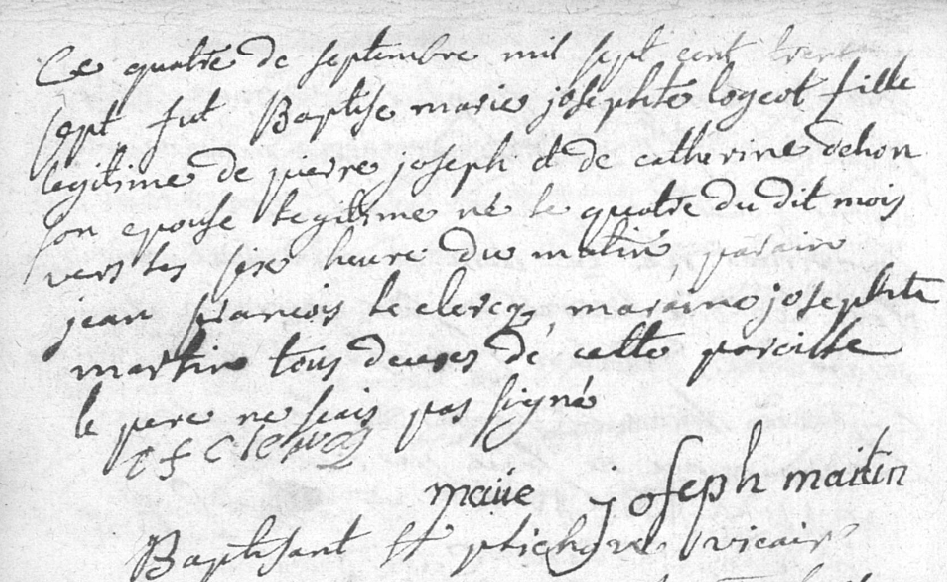 Ce quatre de septembre mil sept cent trent
sept fut Baptise marie josephte logeot fille
legitime de pierre joseph et de catherine dehon
son epouse legitime né le quatre du dit mois
vers les six heure du matin, parain
jean francois le clercq, maraine josephte
martin tous deuxes de cette paroisse
le pere ne scais pas signé
marie joseph martin
Baptisant vicair